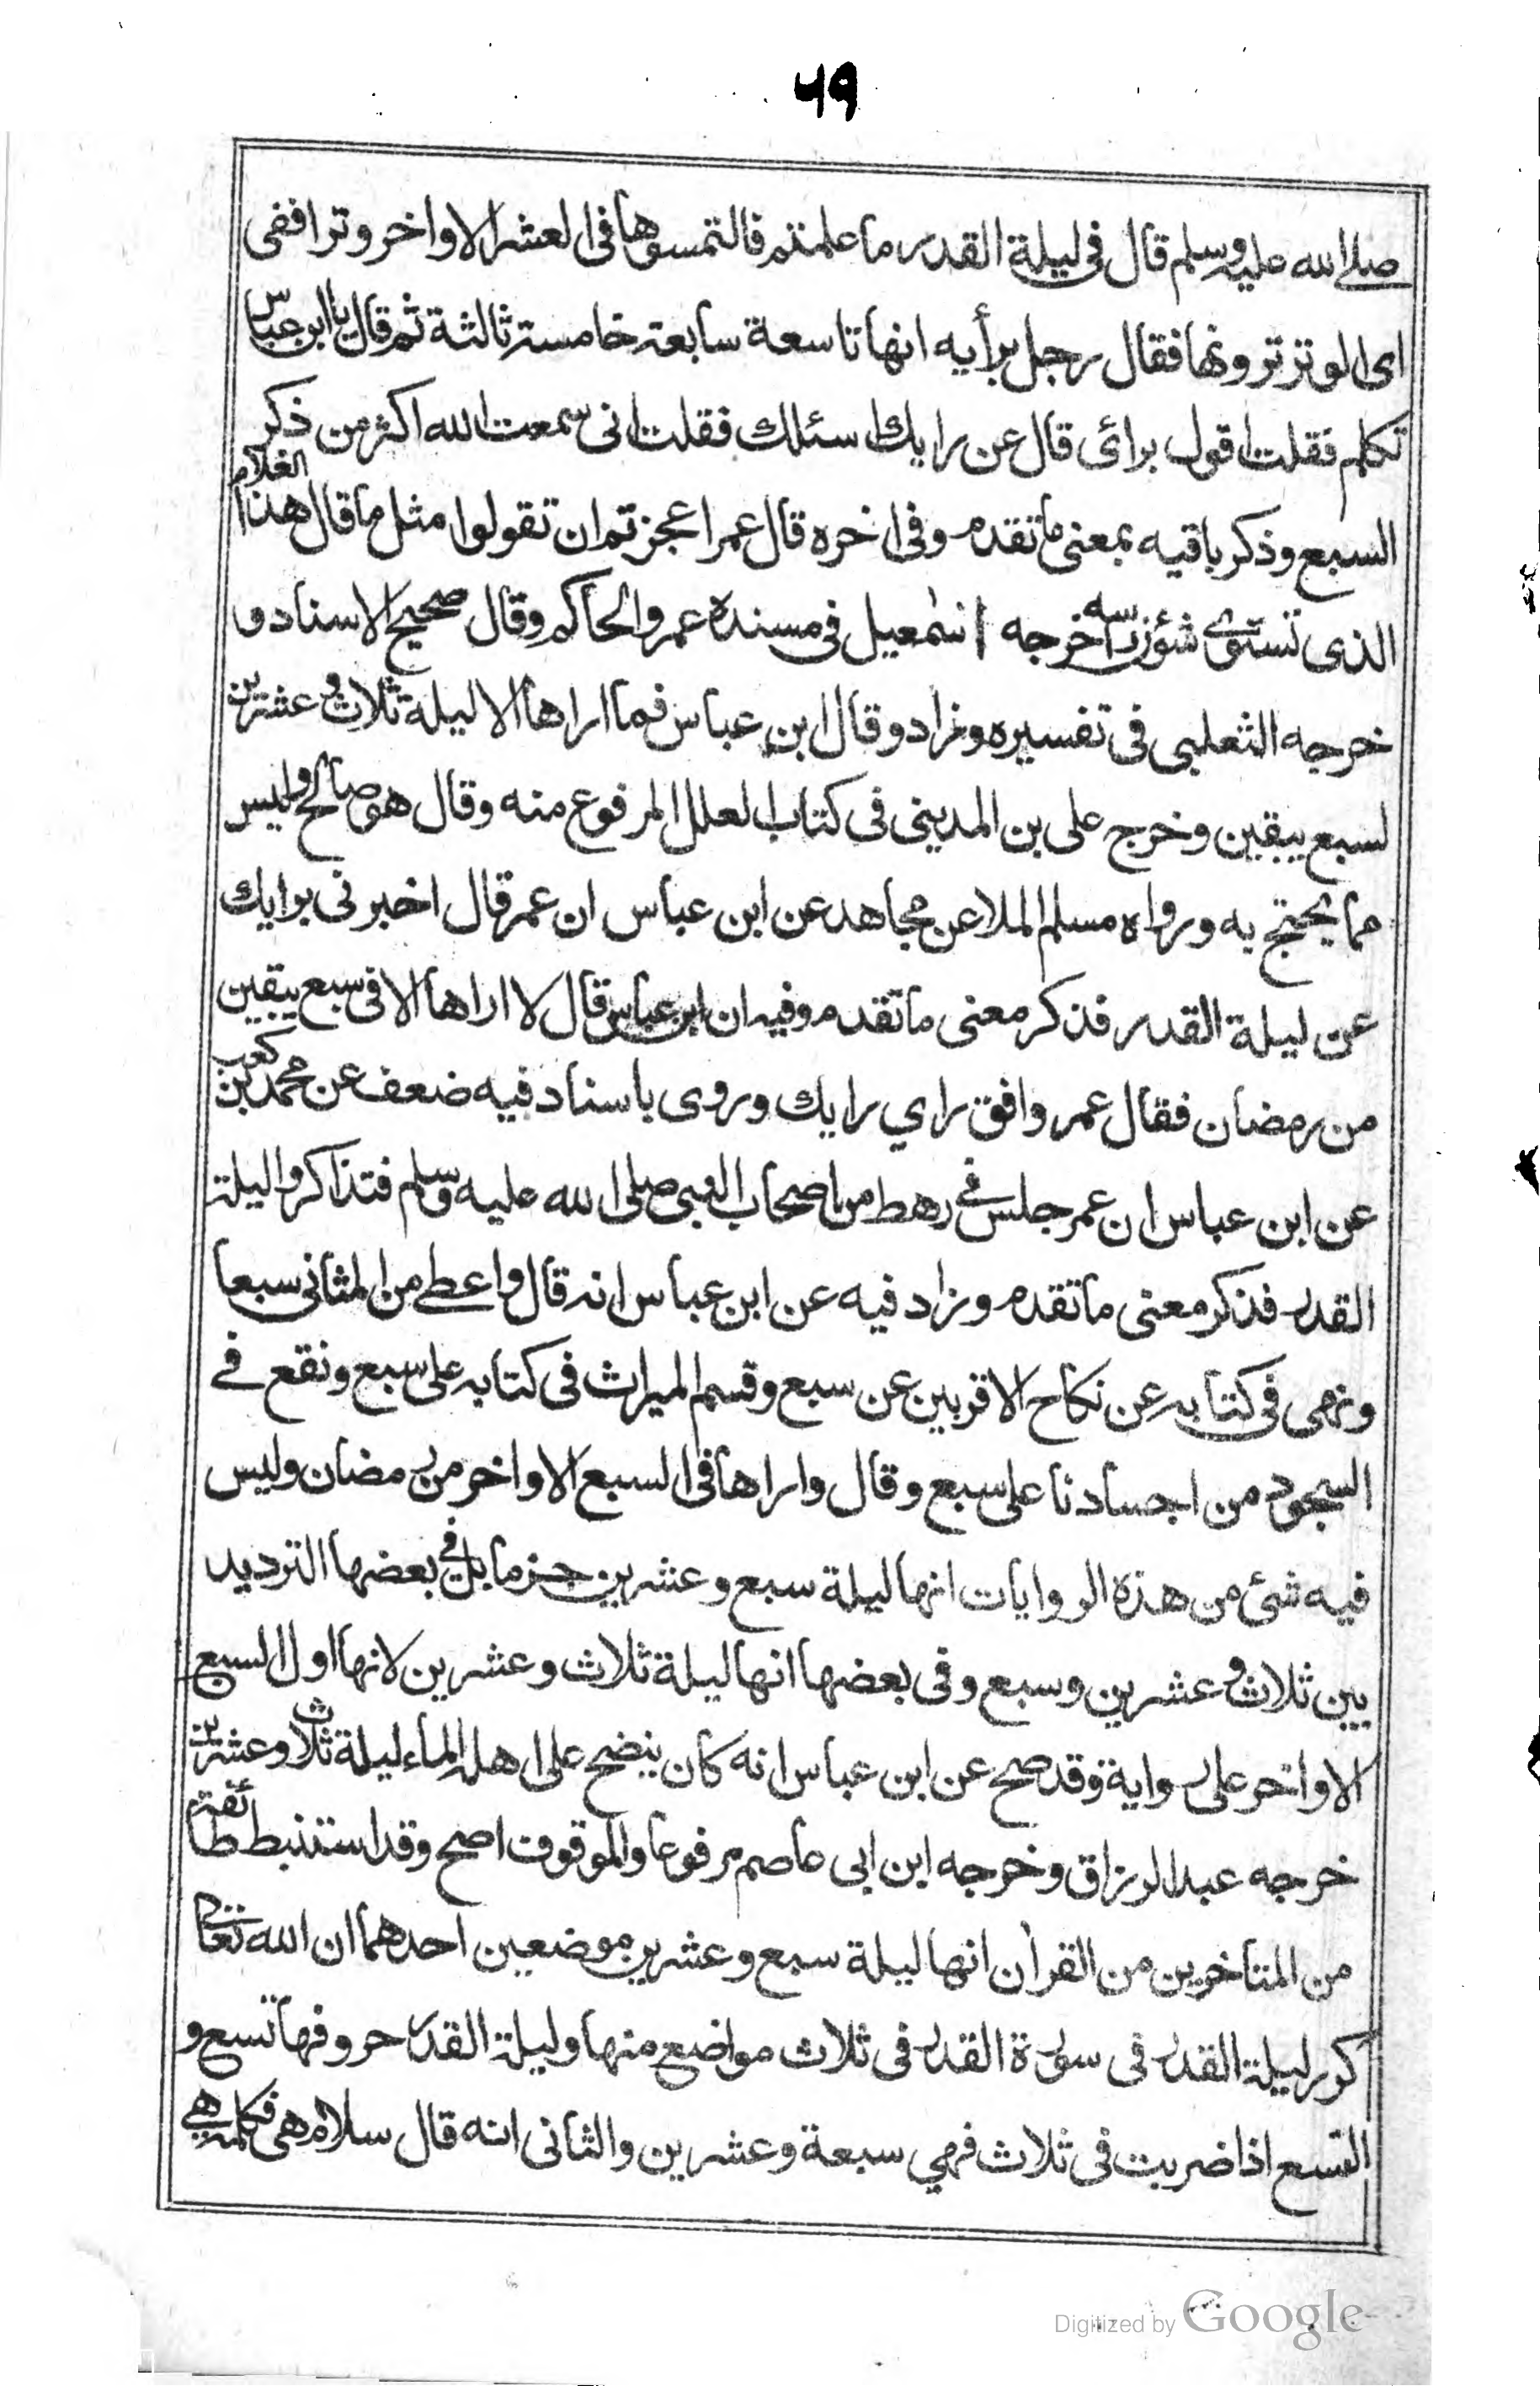 ٤٩
صلى الله عليه وسلم قال في ليلة القدر ما علمتم فالتمسوها في العشر الاواخر وترا ففى
اى الوتر ترونها فقال رجل برأيه انها تاسعة سابعة خامسة ثالثة ثم قال يا ابن عباس
تكلم فقلت اقول برائى قال عن رايك اسئلك فقلت انى سمعت الله اكثر من ذكر
السبع وذكر باقيه بمعنى ما تقدم وفى اخره قال عمر اعجزتم ان تقولوا مثل ما قال هذا الغلام
الذى تستوى شئون راسه خرجه اسمعيل فى مسنده عمر والحاكم وقال صحيح الاسناد و
خرجه الثعلبى فى تفسيره وزاد وقال ابن عباس فما اراها الا ليلة ثلاث وعشرين
لسبع يبقين وخرج على بن المدينى فى كتاب العلل المرفوع منه وقال هو صالح وليس
مما يحتج به ورواه مسلم الملا عن مجاهد عن ابن عباس ان عمر قال اخبرنى برايك
عن ليلة القدر فذكر معنى ما تقدم وفيه ان ابن عباس قال لا اراها الا فى سبع يبقين
من رمضان فقال عمر وافق راي رايك وروى باسناد فيه ضعف عن محمد بن كعب
عن ابن عباس ان عمر جلس في رهط من اصحاب النبى صلى الله عليه وسلم فتذاكروا ليلة
القدر فذكر معنى ما تقدم وزاد فيه عن ابن عباس انه قال واعطي من المثانى سبعا
ونهى فى كتابه عن نكاح الاقربين عن سبع وقسم الميراث فى كتابه على سبع ونقع في
السجود من اجسادنا على سبع وقال واراها فى السبع الاواخر من رمضان وليس
فيه شئ من هذه الروايات انها ليلة سبع وعشرين جزما بل في بعضها الترديد
بين ثلاث وعشرين وسبع وفى بعضها انها ليلة ثلاث وعشرين لانها اول السبع
الاواخر على رواية وقد صح عن ابن عباس انه كان ينضح على اهله الماء ليلة ثلاث وعشرين
خرجه عبد الرزاق وخرجه ابن ابى عاصم مرفوعا والموقوف اصح وقد استنبط طائفة
من المتاخرين من القرأن انها ليلة سبع وعشرين موضعين احدهما ان الله تعالى
كرر ليلة القدر فى سورة القدر فى ثلاث مواضع منها وليلة القدر حروفها تسع و
التسع اذا ضربت فى ثلاث فهي سبعة وعشرين والثانى انه قال سلام هى فكلمة هي
Digitized by Google